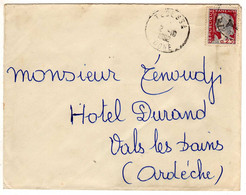 Monsieur Zenoudji
Hotel Durand
Vals les bains
(Ardéche)